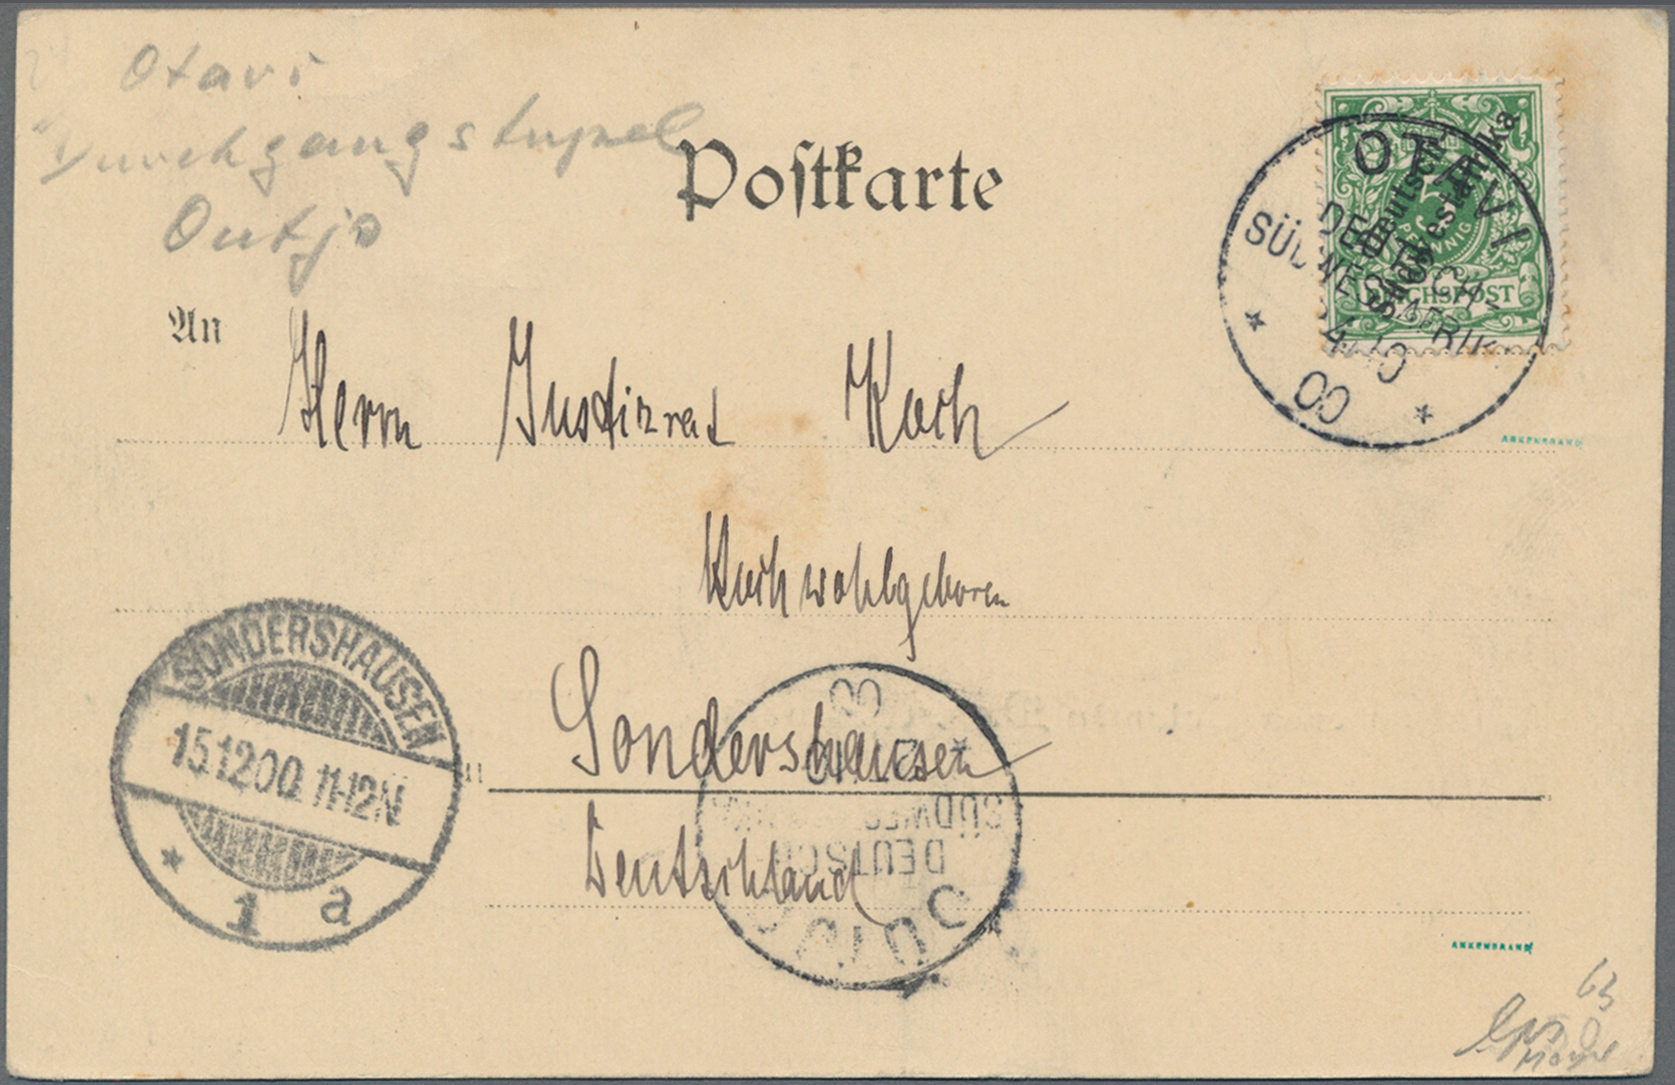 Otavi
Durchgangstempel
Outjo
Postkarte
Deutsch-
Südwest-Afrika
5
PFENNIG
REICHSPOST
OTAVI
DEUTSCH-
SÜDWESTAFRIKA
4/10
00
An
Herrn Justizrat Koch
ANKENBRAND
Hochwohlgeboren
SONDERSHAUSEN
15.12.00. 11-12N
1 a
in
Sondershausen
Deutschland
OUTJO
DEUTSCH-
SÜDWESTAFRIKA
00
ANKENBRAND
63